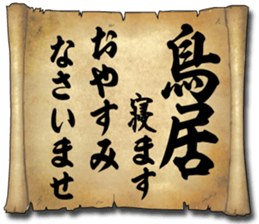 鳥居
寝ます
おやすみ
なさいませ